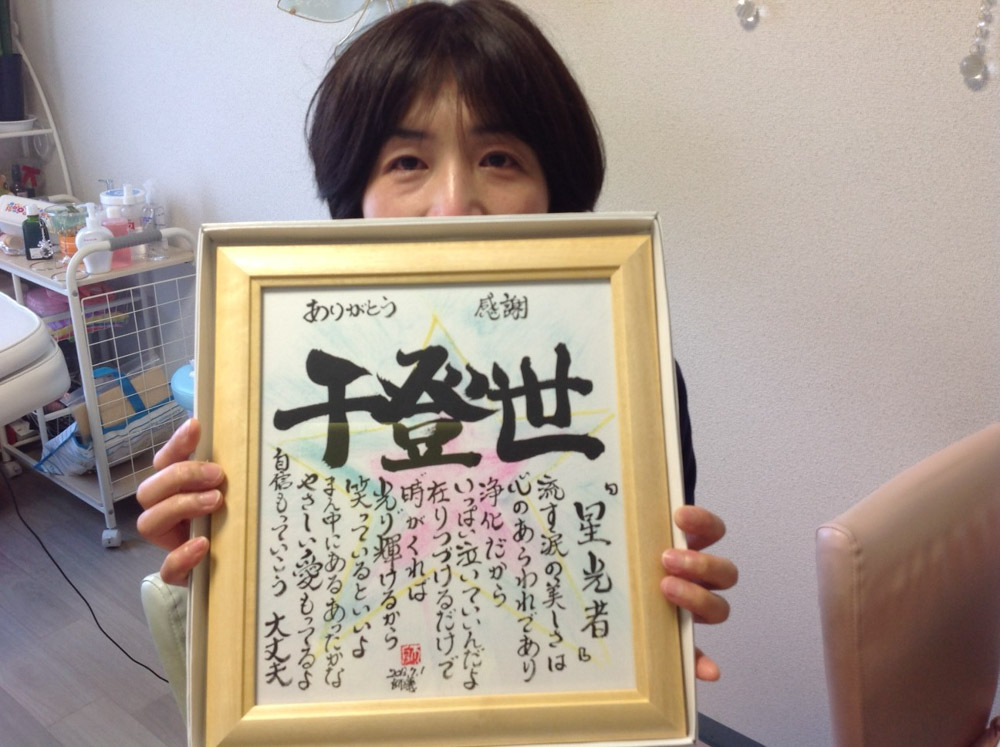 ありがとう 感謝
千登世
『星光者』
流す涙の美しさは
心のあらわれであり
浄化だから
いっぱい泣いていいんだよ
在りつづけるだけで
時がくれば
光り輝けるから
笑っているといいよ
まん中にあるあったかな
やさしい愛もってるよ
自信もっていこう 大丈夫